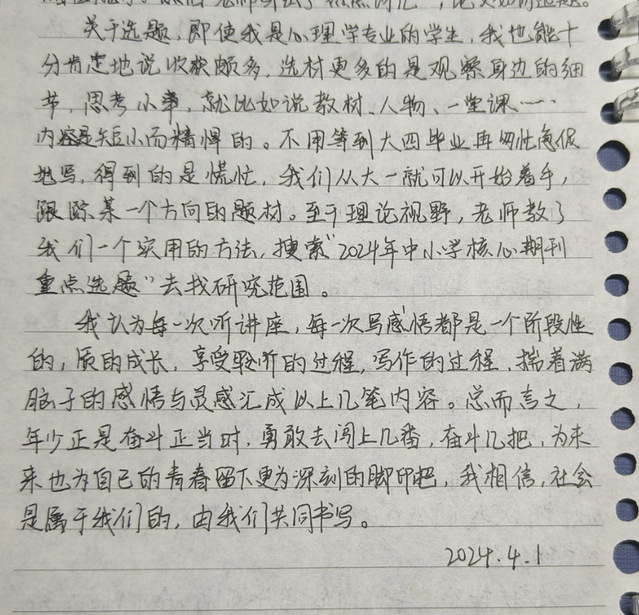 关于选题，即使我是心理学专业的学生，我也能十
分肯定地说收获颇多，选材更多的是观察身边的细
节，思考小事，就比如说教材、人物、一堂课……
内容是短小而精悍的。不用等到大四毕业再匆忙急促
地写，得到的是慌忙，我们从大一就可以开始着手，
跟踪某一个方向的题材。至于理论视野，老师教了
我们一个实用的方法，搜索"2024年中小学核心期刊
重点选题"去找研究范围。
我认为每一次听讲座，每一次写感悟都是一个阶段性
的，质的成长，享受聆听的过程，写作的过程，揣着满
脑子的感悟与灵感汇成以上几笔内容。总而言之，
年少正是奋斗正当时，勇敢去闯上几番，奋斗几把，为未
来也为自己的青春留下更为深刻的脚印吧，我相信，社会
是属于我们的，由我们共同书写。
2024.4.1